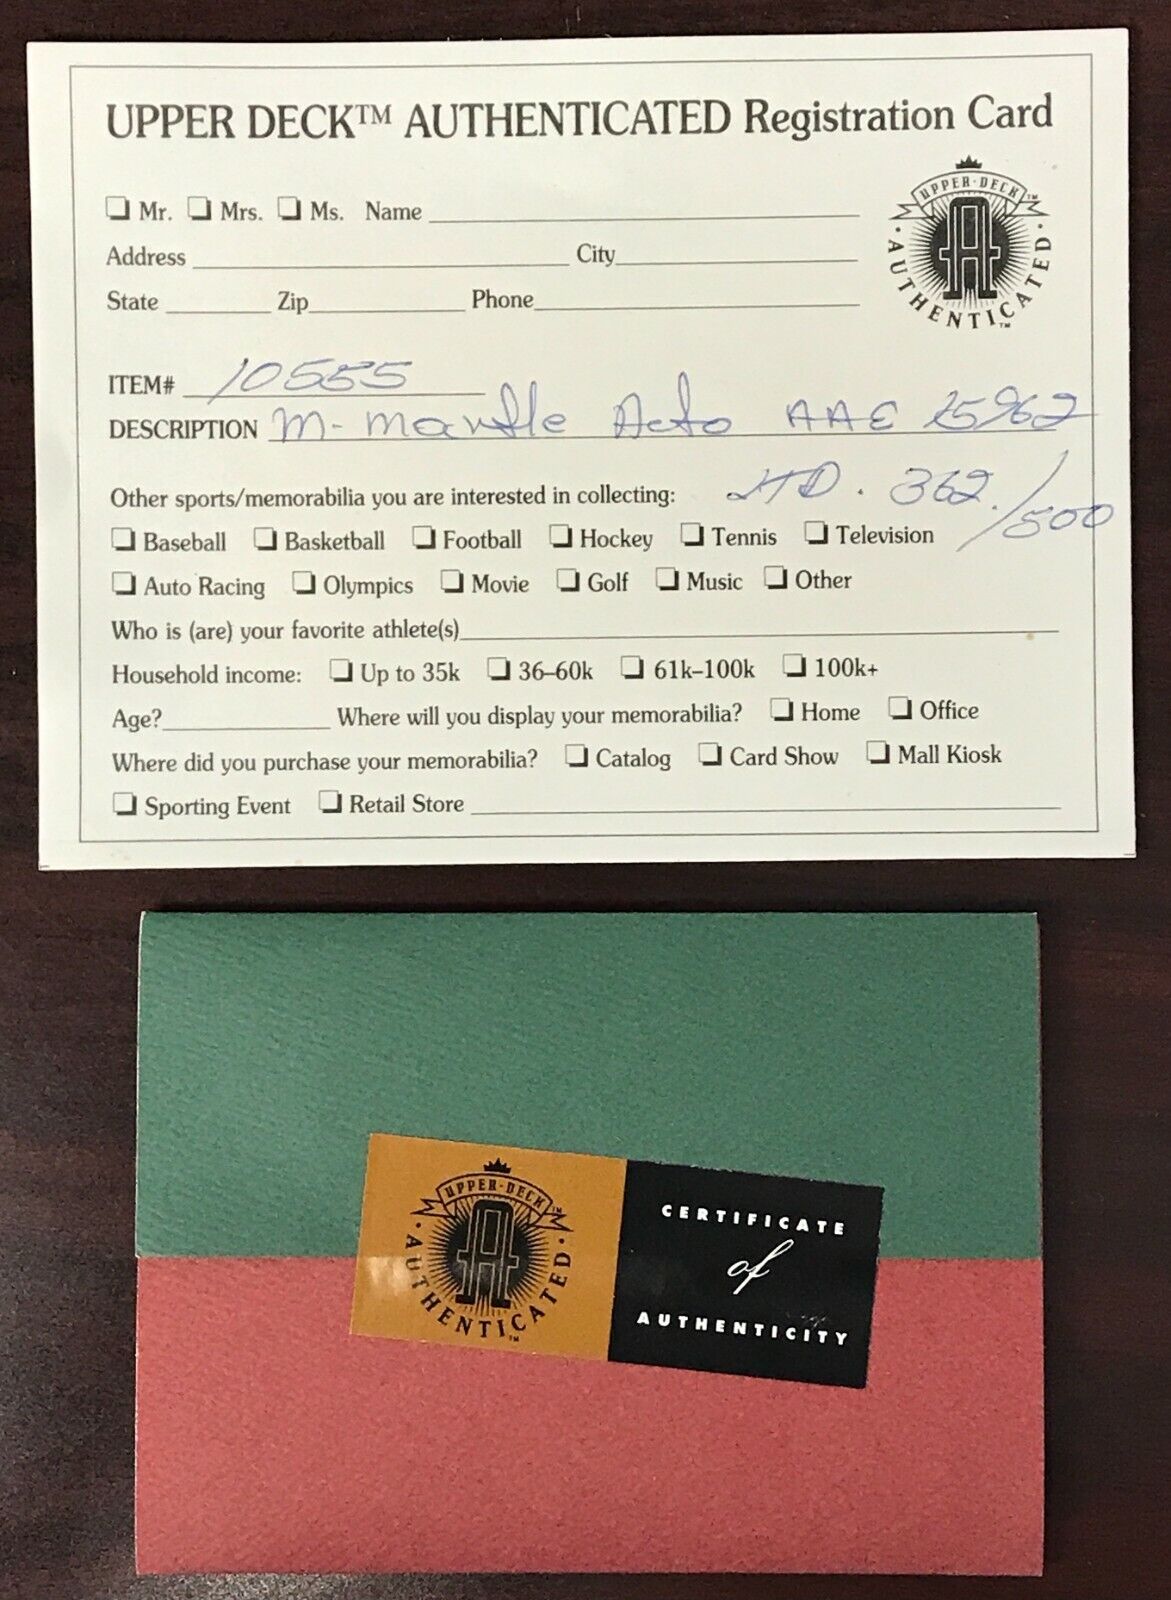 UPPER DECK™ AUTHENTICATED Registration Card
Mr. Mrs. Ms. Name
Address City
State Zip Phone
UPPER·DECK™
·AUTHENTICATED·™
ITEM# 10555
DESCRIPTION M- Mantle Acto AAE 15962
LTD. 362/500
Other sports/memorabilia you are interested in collecting:
Baseball Basketball Football Hockey Tennis Television
Auto Racing Olympics Movie Golf Music Other
Who is (are) your favorite athlete(s)
Household income: Up to 35k 36–60k 61k–100k 100k+
Age? Where will you display your memorabilia? Home Office
Where did you purchase your memorabilia? Catalog Card Show Mall Kiosk
Sporting Event Retail Store
UPPER·DECK™
·AUTHENTICATED·™
CERTIFICATE
of
AUTHENTICITY